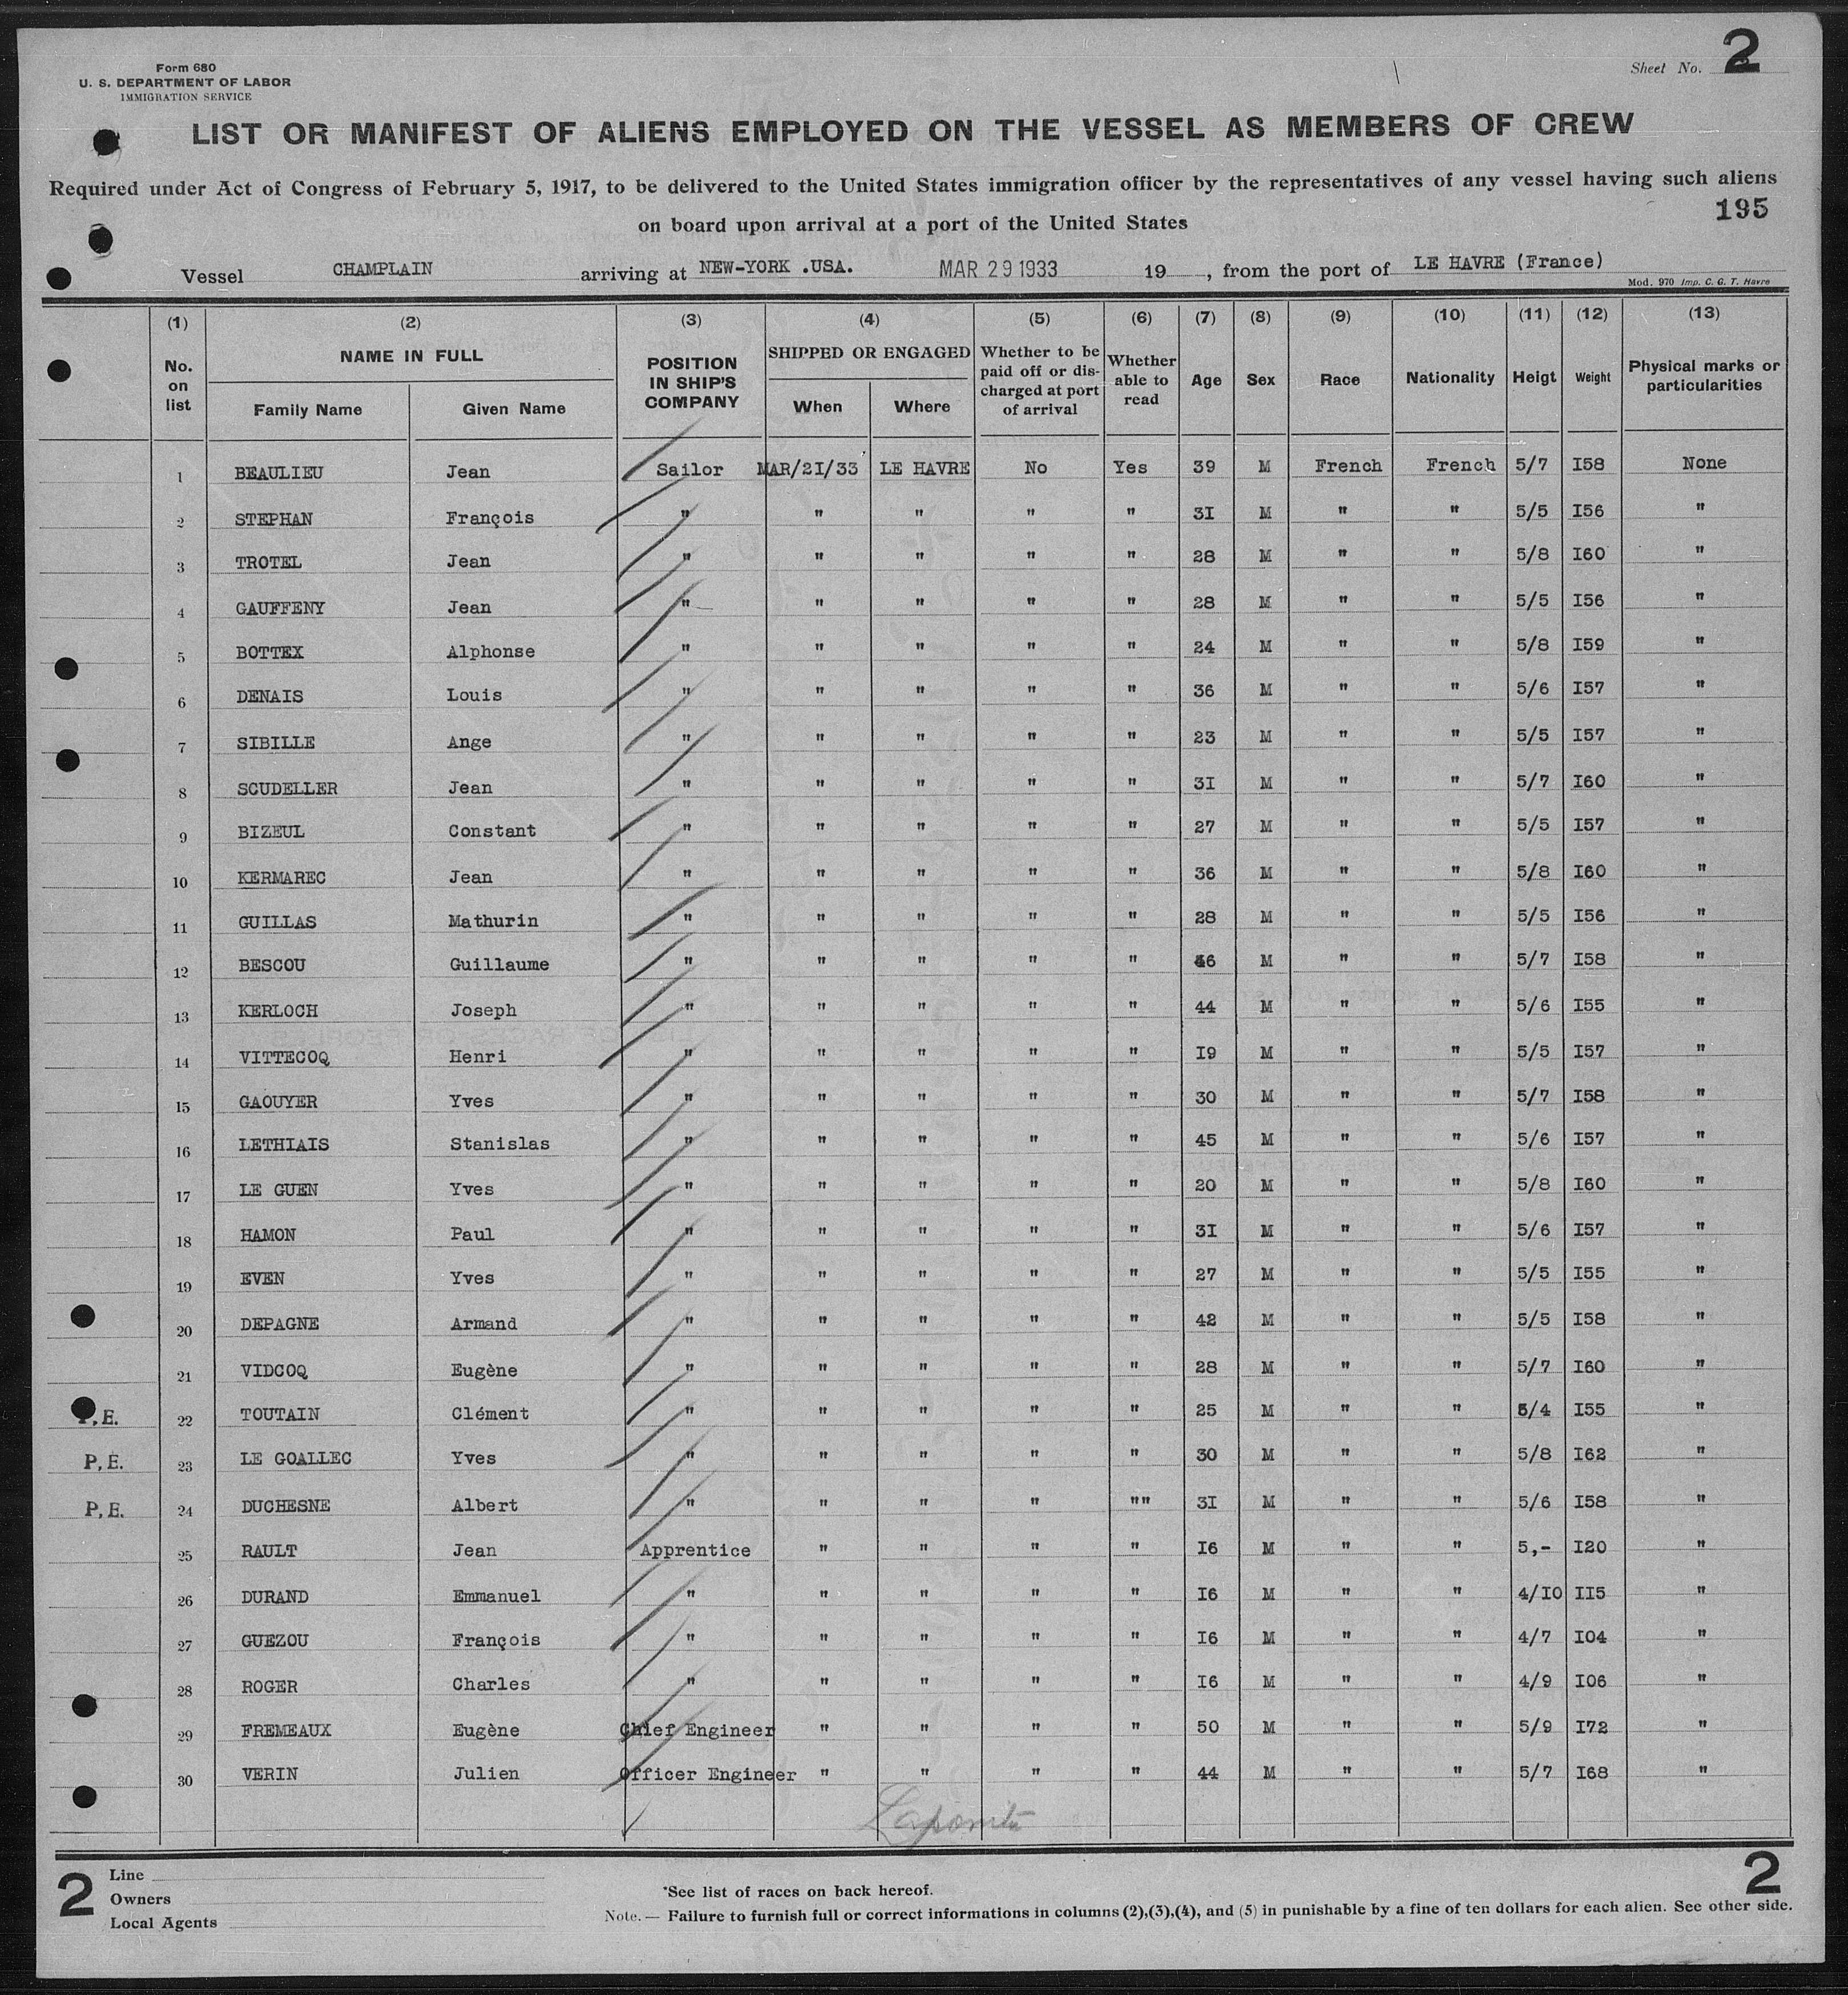 Form 680
U. S. DEPARTMENT OF LABOR
IMMIGRATION SERVICE
Sheet No. 2
LIST OR MANIFEST OF ALIENS EMPLOYED ON THE VESSEL AS MEMBERS OF CREW
Required under Act of Congress of February 5, 1917, to be delivered to the United States immigration officer by the representatives of any vessel having such aliens
on board upon arrival at a port of the United States
195
Vessel CHAMPLAIN arriving at NEW-YORK .USA. MAR 29 1933 19 , from the port of LE HAVRE (France)
Mod. 970 Imp. C. G. T. Havre
(1) (2) (3) (4) (5) (6) (7) (8) (9) (10) (11) (12) (13)
No. on list NAME IN FULL Family Name Given Name POSITION IN SHIP'S COMPANY SHIPPED OR ENGAGED When Where Whether to be paid off or discharged at port of arrival Whether able to read Age Sex Race Nationality Heigt Weight Physical marks or particularities
1 BEAULIEU Jean Sailor MAR/21/33 LE HAVRE No Yes 39 M French French 5/7 I58 None
2 STEPHAN François " " " " " 3I M " " 5/5 I56 "
3 TROTEL Jean " " " " " 28 M " " 5/8 I60 "
4 GAUFFENY Jean " " " " " 28 M " " 5/5 I56 "
5 BOTTEX Alphonse " " " " " 24 M " " 5/8 I59 "
6 DENAIS Louis " " " " " 36 M " " 5/6 I57 "
7 SIBILLE Ange " " " " " 23 M " " 5/5 I57 "
8 SCUDELLER Jean " " " " " 3I M " " 5/7 I60 "
9 BIZEUL Constant " " " " " 27 M " " 5/5 I57 "
10 KERMAREC Jean " " " " " 36 M " " 5/8 I60 "
11 GUILLAS Mathurin " " " " " 28 M " " 5/5 I56 "
12 BESCOU Guillaume " " " " " 46 M " " 5/7 I58 "
13 KERLOCH Joseph " " " " " 44 M " " 5/6 I55 "
14 VITTECOQ Henri " " " " " I9 M " " 5/5 I57 "
15 GAOUYER Yves " " " " " 30 M " " 5/7 I58 "
16 LETHIAIS Stanislas " " " " " 45 M " " 5/6 I57 "
17 LE GUEN Yves " " " " " 20 M " " 5/8 I60 "
18 HAMON Paul " " " " " 3I M " " 5/6 I57 "
19 EVEN Yves " " " " " 27 M " " 5/5 I55 "
20 DEPAGNE Armand " " " " " 42 M " " 5/5 I58 "
21 VIDCOQ Eugène " " " " " 28 M " " 5/7 I60 "
P.E. 22 TOUTAIN Clément " " " " " 25 M " " 5/4 I55 "
P.E. 23 LE GOALLEC Yves " " " " " 30 M " " 5/8 I62 "
P.E. 24 DUCHESNE Albert " " " " "" 3I M " " 5/6 I58 "
25 RAULT Jean Apprentice " " " " I6 M " " 5,- I20 "
26 DURAND Emmanuel " " " " " I6 M " " 4/I0 II5 "
27 GUEZOU François " " " " " I6 M " " 4/7 I04 "
28 ROGER Charles " " " " " I6 M " " 4/9 I06 "
29 FREMEAUX Eugène Chief Engineer " " " " 50 M " " 5/9 I72 "
30 VERIN Julien Officer Engineer " " " " 44 M " " 5/7 I68 "
2
Line
Owners
Local Agents
*See list of races on back hereof.
Note.— Failure to furnish full or correct informations in columns (2),(3),(4), and (5) in punishable by a fine of ten dollars for each alien. See other side.
2